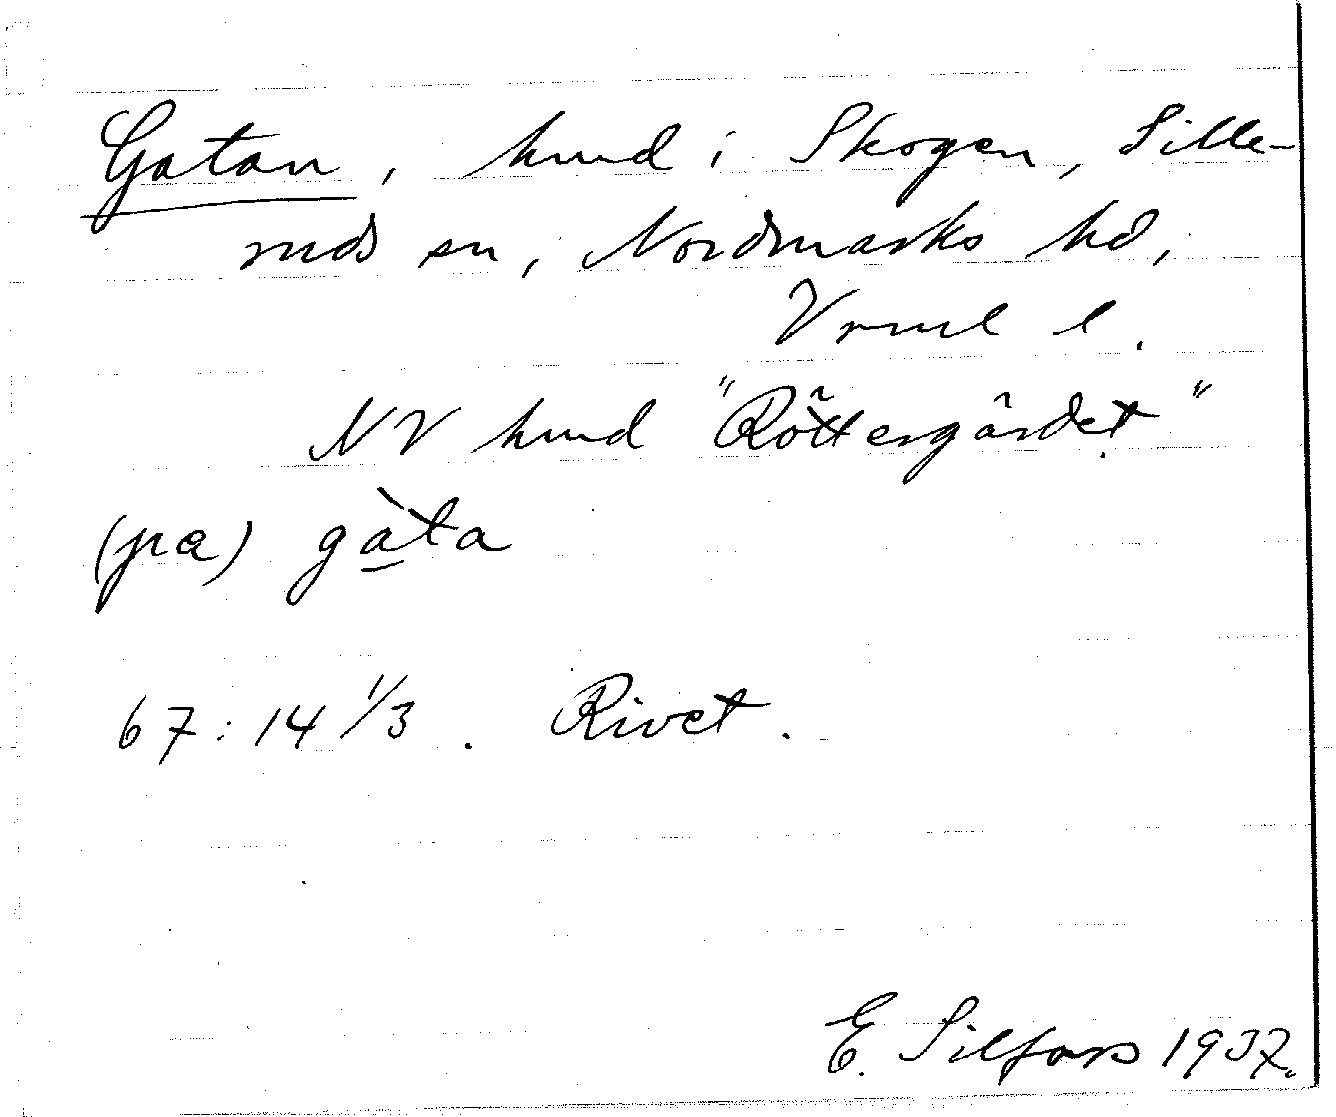 Gatan, hmd i Skogen, Sille-
ruds sn, Nordmarks hd,
Vrml l.
NV hmd "Röttergårdet"
(pa) gàta
67:14 1/3. Rivet.
E. Silfors 1937.